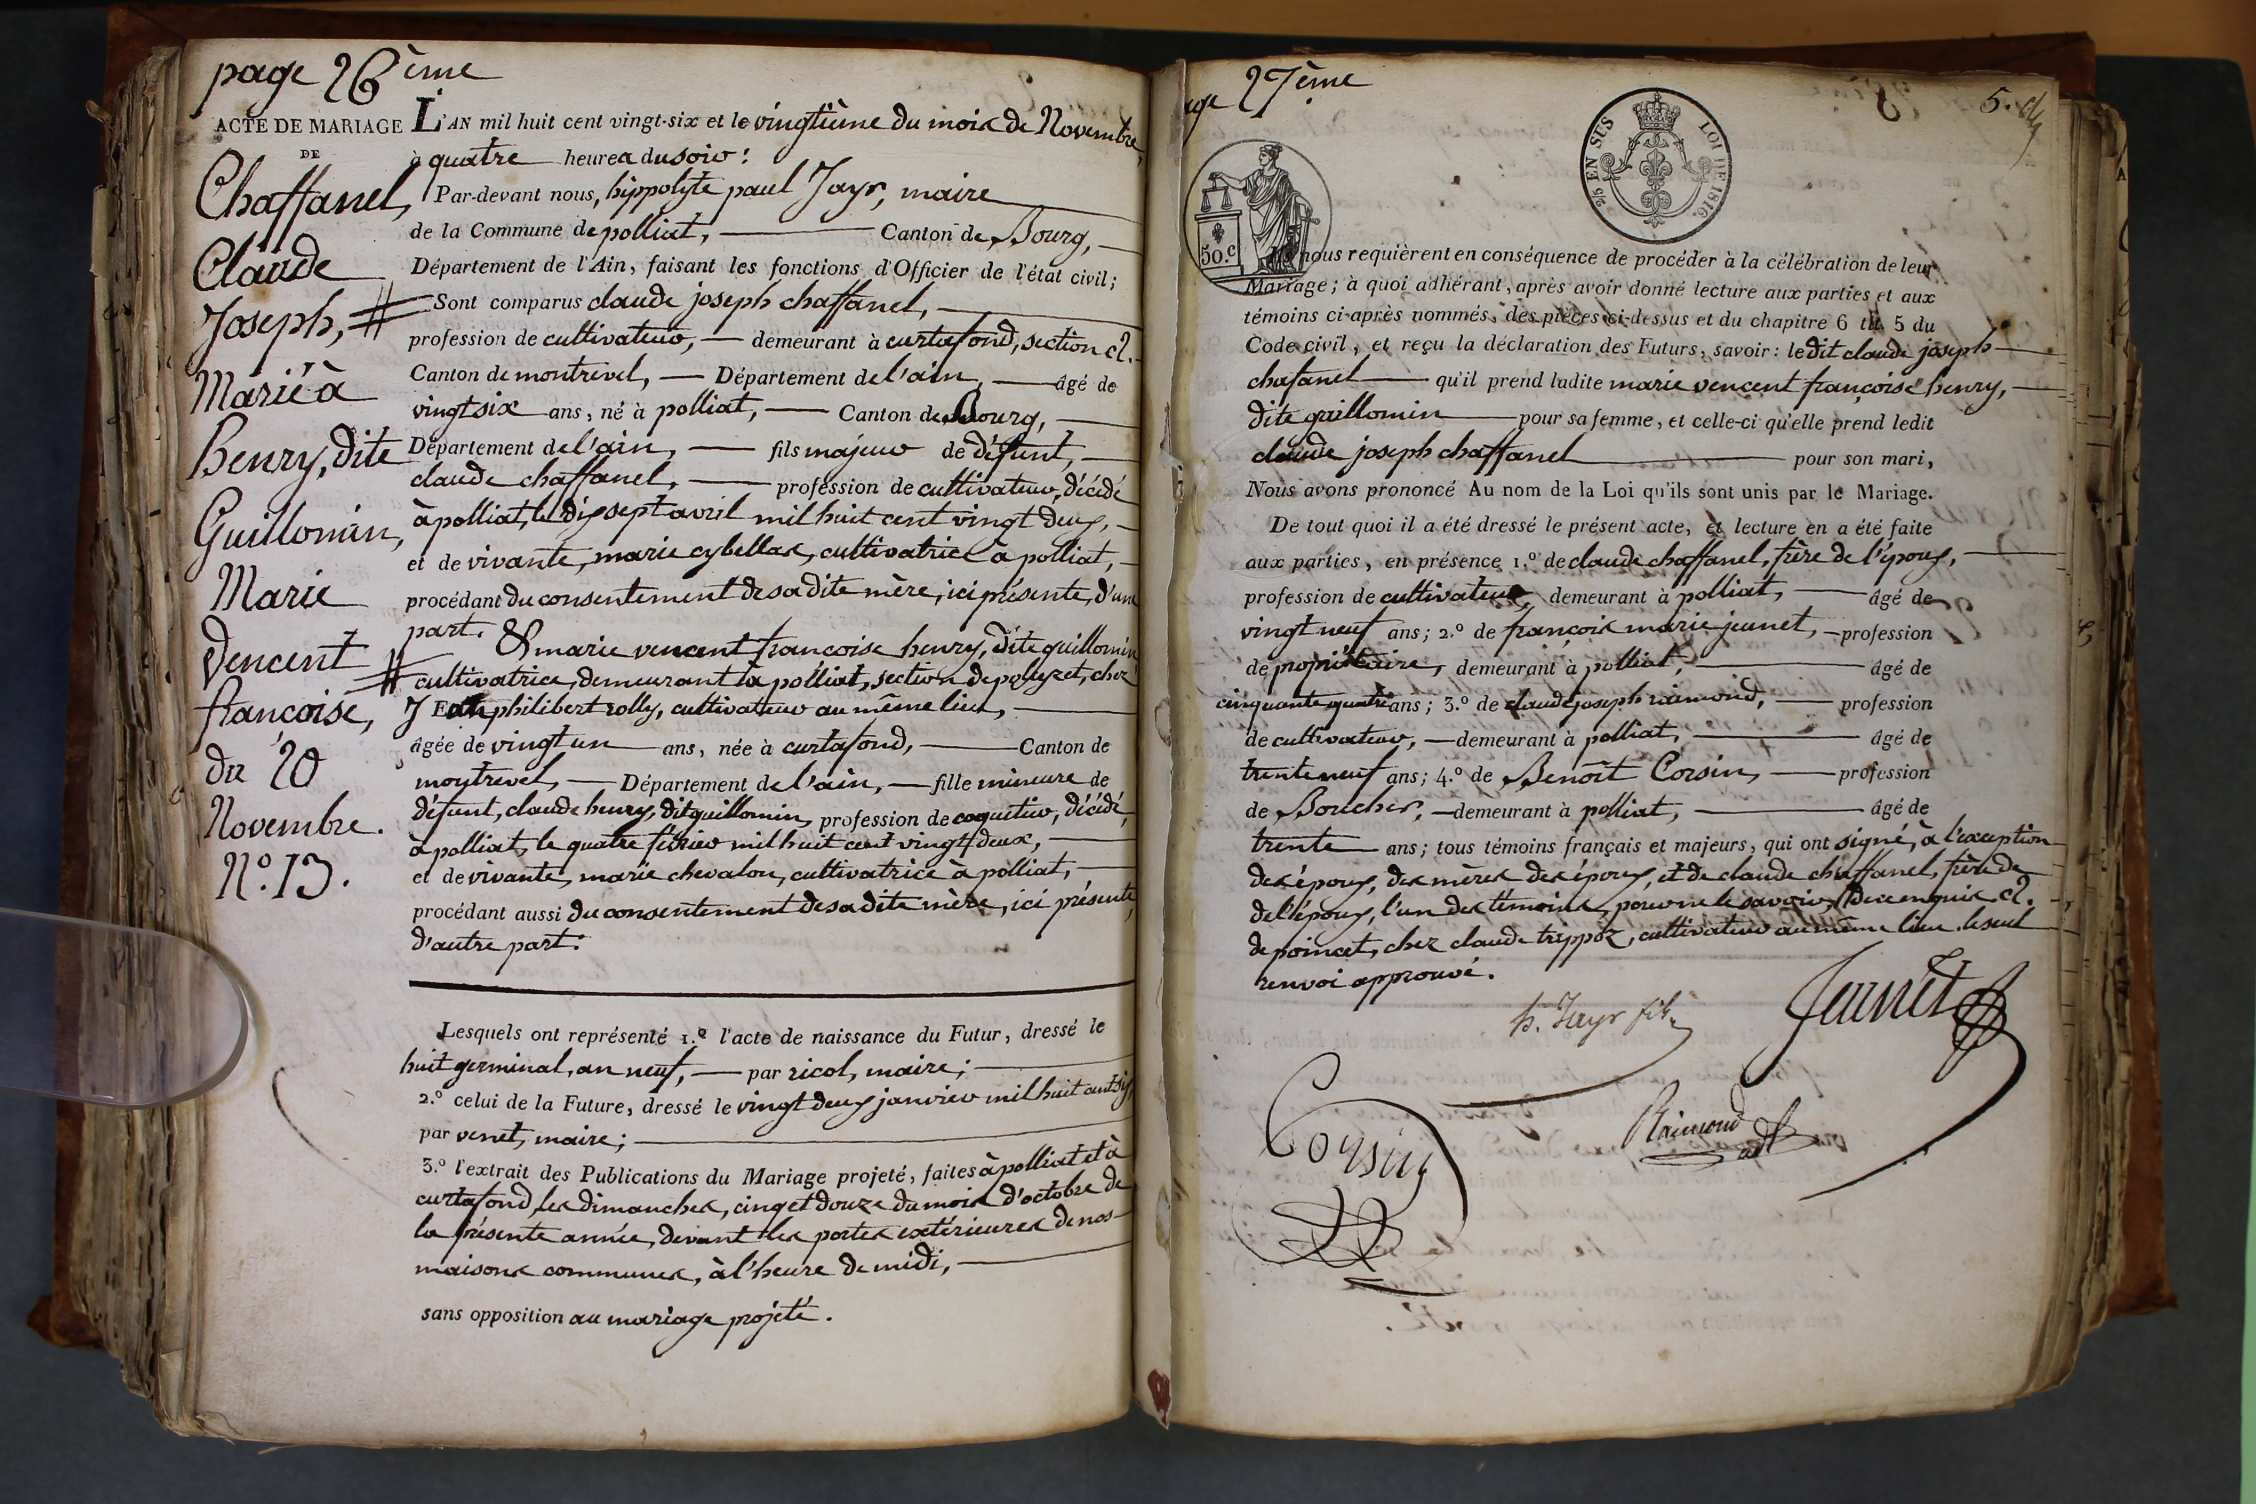 page 26ème
ACTE DE MARIAGE
DE
Chaffanel,
Claude
Joseph, #
Marié à
Benry, dite
Guillomin,
Marie
Vencent #
françoise,
du 20
Novembre.
N.º 13.
L'AN mil huit cent vingt-six et le vingtième du mois de Novembre,
à quatre heures du soir:
Par-devant nous, hippolyte paul Jayr, maire
de la Commune de polliat, Canton de Bourg,
Département de l'Ain, faisant les fonctions d'Officier de l'état civil;
Sont comparus claude joseph chaffanel,
profession de cultivateur, demeurant à curtafond, section
Canton de montrevel, Département de l'ain, âgé de
vingt six ans, né à polliat, Canton de Bourg,
Département de l'ain, fils majeur de défunt,
claude chaffanel, profession de cultivateur, décédé
à polliat, le dix sept avril mil huit cent vingt deux,
et de vivante, marie cybellas, cultivatrice à polliat,
procédant du consentement de sa dite mère, ici présente, d'une
part. Et marie vencent francoise henry, dite guillomin
cultivatrice, demeurant à polliat, section de polleyzet, chez
philibert rolly, cultivateur au même lieu,
âgée de vingt un ans, née à curtafond, Canton de
montrevel, Département de l'ain, fille mineure de
défunt, claude henry, dit guillomin, profession de coquetier, décédé,
à polliat, le quatre février mil huit cent vingt deux,
et de vivante, marie chevalon, cultivatrice à polliat,
procédant aussi du consentement de sa dite mère, ici présente,
d'autre part:
Lesquels ont représenté 1.º l'acte de naissance du Futur, dressé le
huit germinal, an neuf, par ricol, maire;
2.º celui de la Future, dressé le vingt deux janvier mil huit cent six
par venet, maire;
3.º l'extrait des Publications du Mariage projeté, faites à polliat et à
curtafond, les dimanches, cinq et douze du mois d'octobre de
la présente année, devant les portes extérieures de nos
maisons communes, à l'heure de midi,
sans opposition au mariage projeté.
page 27ème
5.
2/5 EN SUS LOI DE 1816.
50.c
nous requièrent en conséquence de procéder à la célébration de leur
Mariage; à quoi adhérant, après avoir donné lecture aux parties et aux
témoins ci-après nommés, des pièces ci-dessus et du chapitre 6 tit. 5 du
Code civil, et reçu la déclaration des Futurs, savoir: le dit claude joseph
chafanel qu'il prend ladite marie vencent françoise henry,
dite guillomin pour sa femme, et celle-ci qu'elle prend ledit
claude joseph chaffanel pour son mari,
Nous avons prononcé Au nom de la Loi qu'ils sont unis par le Mariage.
De tout quoi il a été dressé le présent acte, et lecture en a été faite
aux parties, en présence 1.º de claude chaffanel, frère de l'époux,
profession de cultivateur, demeurant à polliat, âgé de
vingt neuf ans; 2.º de françois marie jeunet, profession
de propriétaire, demeurant à polliat, âgé de
cinquante quatre ans; 3.º de claude joseph raimond, profession
de cultivateur, demeurant à polliat, âgé de
trente neuf ans; 4.º de Benoît Corsin, profession
de Boucher, demeurant à polliat, âgé de
trente ans; tous témoins français et majeurs, qui ont signé, à l'exception
des époux, des mères des époux, et de claude chaffanel, frère de
de l'époux, l'un des témoins, pour ne le savoir, de ce enquis.
de poincet, chez claude trippoz, cultivateur au même lieu. le seul
renvoi approuvé.
h. Jayr fils
Jeunet
Corsin
Raimond